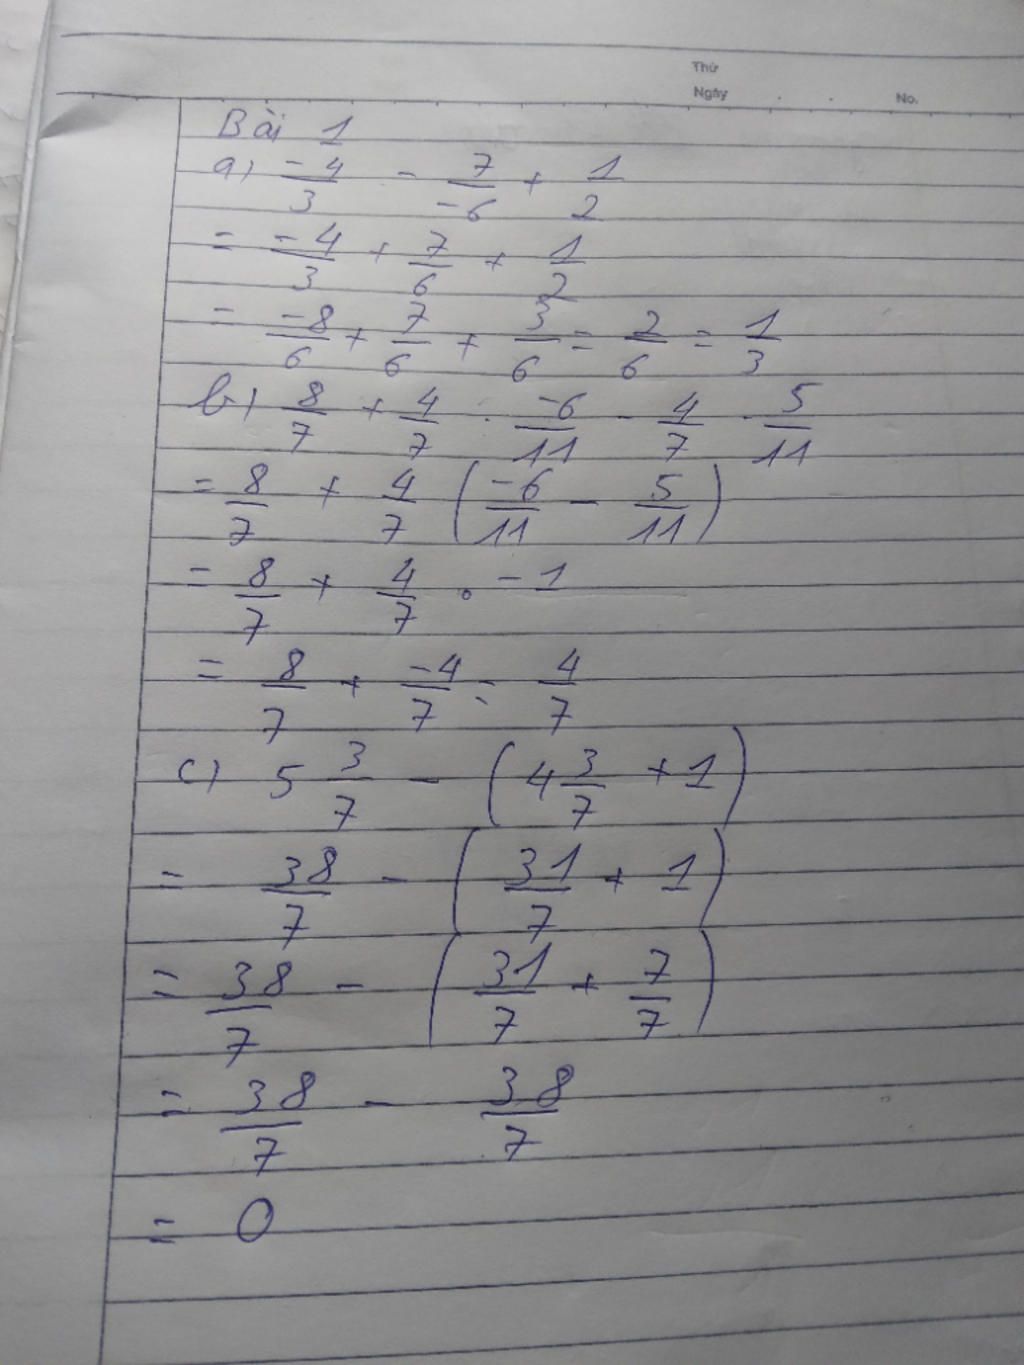 Thứ
Ngày . . No.
Bài 1
a) -4/3 - 7/-6 + 1/2
= -4/3 + 7/6 + 1/2
= -8/6 + 7/6 + 3/6 = 2/6 = 1/3
b) 8/7 + 4/7 . -6/11 - 4/7 . 5/11
= 8/7 + 4/7 (-6/11 - 5/11)
= 8/7 + 4/7 . -1
= 8/7 + -4/7 = 4/7
c) 5 3/7 - (4 3/7 + 1)
= 38/7 - (31/7 + 1)
= 38/7 - (31/7 + 7/7)
= 38/7 - 38/7
= 0